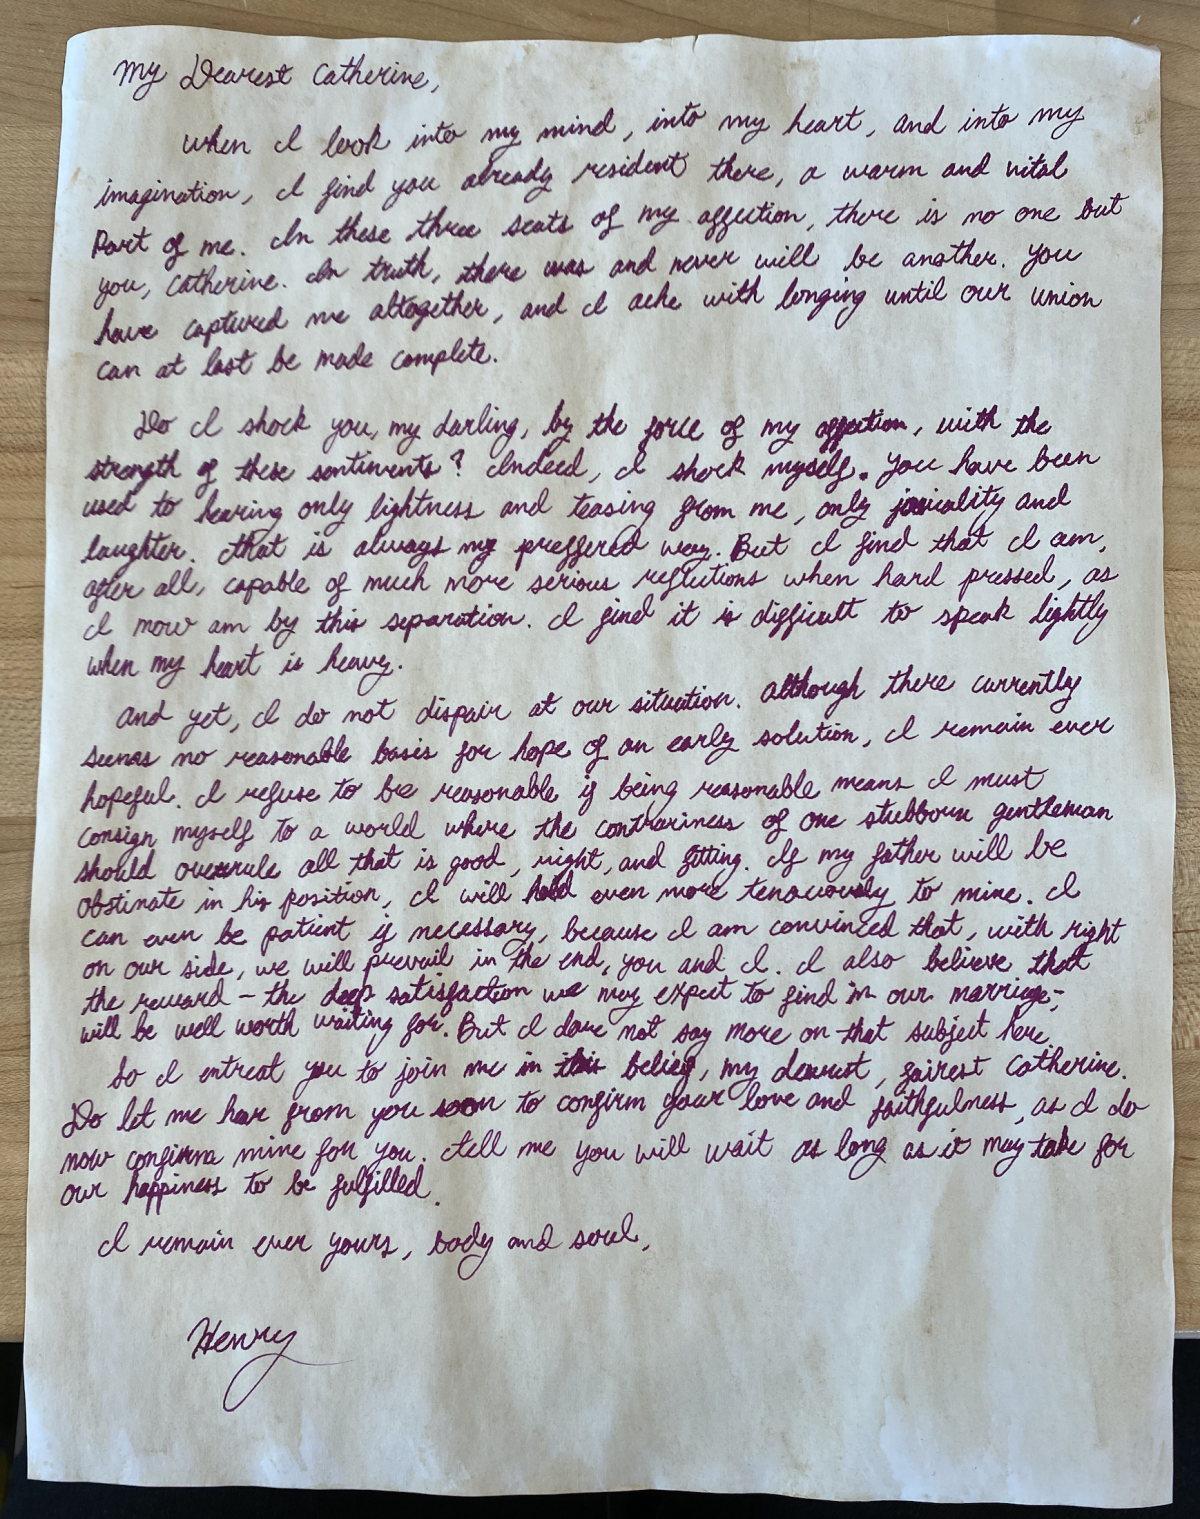 My Dearest Catherine,
When I look into my mind, into my heart, and into my
imagination, I find you already resident there, a warm and vital
Part of me. In these three seats of my affection, there is no one but
you, Catherine. In truth, there was and never will be another. You
have captured me altogether, and I ache with longing until our union
can at last be made complete.
Do I shock you, my darling, by the force of my affection, with the
strength of these sentiments? Indeed, I shock myself. You have been
used to hearing only lightness and teasing from me, only joviality and
laughter. That is always my preffered way. But I find that I am,
after all, capable of much more serious reflections when hard pressed, as
I now am by this separation. I find it is difficult to speak lightly
when my heart is heavy.
And yet, I do not dispair at our situation. Although there currently
seems no reasonable basis for hope of an early solution, I remain ever
hopeful. I refuse to be reasonable if being reasonable means I must
consign myself to a world where the contrariness of one stubborn gentleman
should overrule all that is good, right, and fitting. If my father will be
obstinate in his position, I will hold even more tenaciously to mine. I
can even be patient if necessary, because I am convinced that, with right
on our side, we will prevail in the end, you and I. I also believe that
the reward - the deep satisfaction we may expect to find in our marriage -
will be well worth waiting for. But I dare not say more on that subject here.
So I entreat you to join me in this belief, my dearest, fairest Catherine.
Do let me hear from you soon to confirm your love and faithfulness, as I do
now confirm mine for you. Tell me you will wait as long as it may take for
our happiness to be fulfilled.
I remain ever yours, body and soul,
Henry